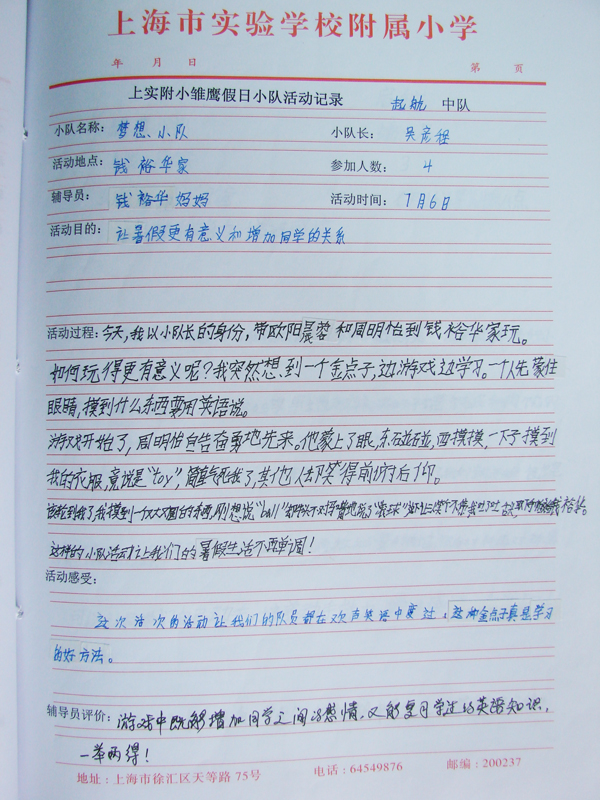 上海市实验学校附属小学
年 月 日 第 页
上实附小雏鹰假日小队活动记录 起航 中队
小队名称: 梦想小队 小队长: 吴彦
活动地点: 钱裕华家 参加人数: 4
辅导员: 钱裕华妈妈 活动时间: 7月6日
活动目的: 让暑假更有意义和增加同学的关系
活动过程: 今天,我以小队长的身份,带欧阳晨蓉和周明怡到钱裕华家玩。
如何玩得更有意义呢?我突然想到一个金点子,边游戏边学习。一个人先蒙住
眼睛,摸到什么东西要用英语说。
游戏开始了,周明怡自告奋勇地先来。他蒙上了眼,东碰碰,西摸摸,一下子摸到
我的衣服,竟说是“toy”,简直气死我了,其他人却笑得前俯后仰。
该轮到我了,我摸到一个大大又圆的东西,刚想说“ball”
这样的小队活动让我们的暑假生活不再单调!
活动感受:
这次活动让我们的队员都在欢声笑语中度过,这个金点子真是学习
的好方法。
辅导员评价: 游戏中既能增加同学之间的感情,又能复习学过的英语知识,
一举两得!
地址:上海市徐汇区天等路 75号 电话:64549876 邮编:200237